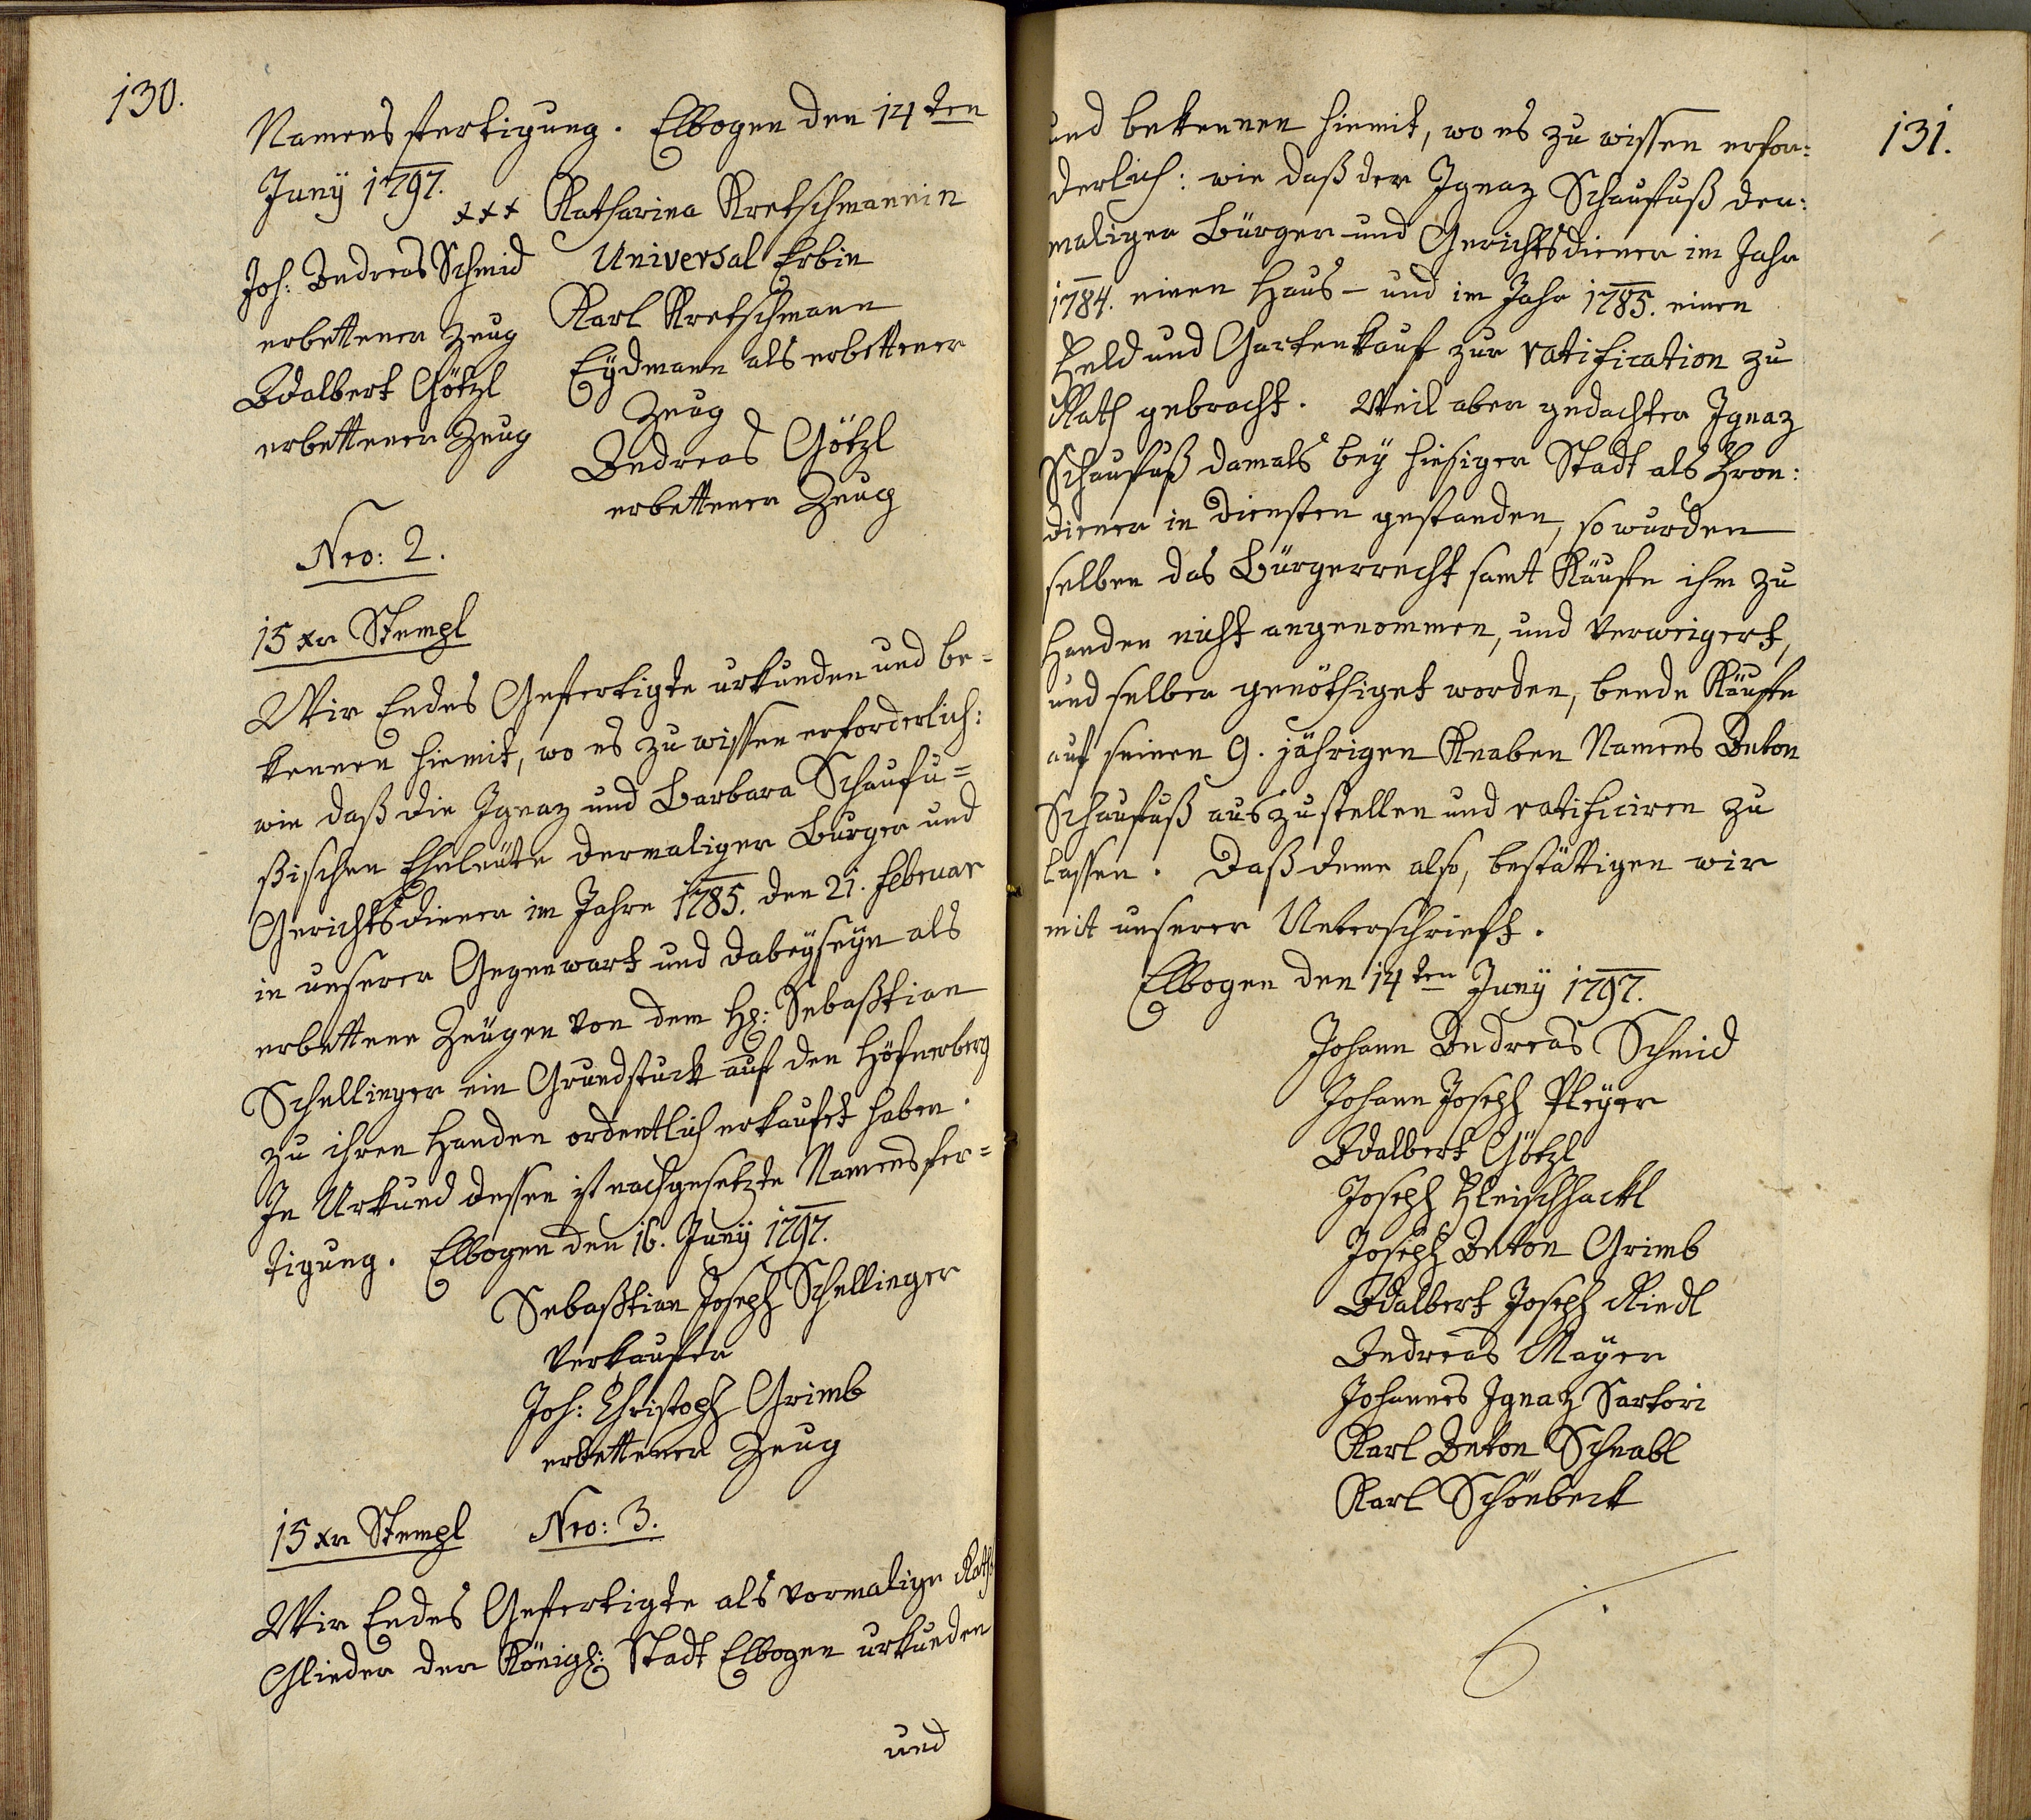 130.
Namens fertigung. Elbogen den 14ten
Juny 1797.
+++ Katharina Kretschmannin
Universal Erbin
Joh: Andreas Schmid
erbettener Zeug
Adalbert Götzl
erbettener Zeug
Karl Kretschmann
Eydmann als erbettener
Zeug
Andreas Götzl
erbettener Zeug
Nro: 2.
15 xr Stempl
Wir Endes Gefertigte urkunden und be=
kennen hiemit, wo es zu wissen erforderlich:
wie daß die Ignaz und Barbara Schaufu=
ßischen Eheleüte dermaliger Burger und
Gerichtsdiener im Jahre 1785. den 21. Februar
in unserer Gegenwart und dabeyseyn als
erbettene Zeugen von dem H: Sebastian
Schellinger ein Grundstuck auf den Höfnerberg
zu ihren Handen ordentlich erkaufet haben.
In Urkund dessen ist nachgesetzte Namensfer=
tigung. Elbogen den 16. Juny 1797.
Sebastian Joseph Schellinger
Verkaufer
Joh: Christoph Grimb
erbettener Zeug
15 xr Stempl Nro: 3.
Wir Endes Gefertigte als vormalige Raths
Glieder der Königl: Stadt Elbogen urkunden
und
131.
und bekennen hiemit, wo es zu wissen erfor:
derlich: wie daß der Ignaz Schaufuß der:
maliger Bürger und Gerichtsdiener im Jahr
1784. einen Haus- und im Jahr 1785. einen
Feld und Gartenkauf zur ratification zu
Rath gebracht. Weil aber gedachter Ignaz
Schaufuß damals bey hiesiger Stadt als Fron:
diener in diensten gestanden, so wurden
selben das Bürgerrecht samt Käufen ihm zu
Handen nicht angenommen, und verweigert,
und selber genöthiget worden, beede Käufe
auf seinen 9. jährigen Knaben Namens Anton
Schaufuß auszustellen und ratificiren zu
lassen. Daß deme also, bestättigen wir
mit unserer Unterschrieft.
Elbogen den 14ten Juny 1797.
Johann Andreas Schmid
Johann Joseph Pleyer
Adalbert Götzl
Joseph Fleischhackl
Joseph Anton Grimb
Adalbert Joseph Riedl
Andreas Mayer
Johannes Ignatz Sartori
Karl Anton Schnabl
Karl Schönbeck